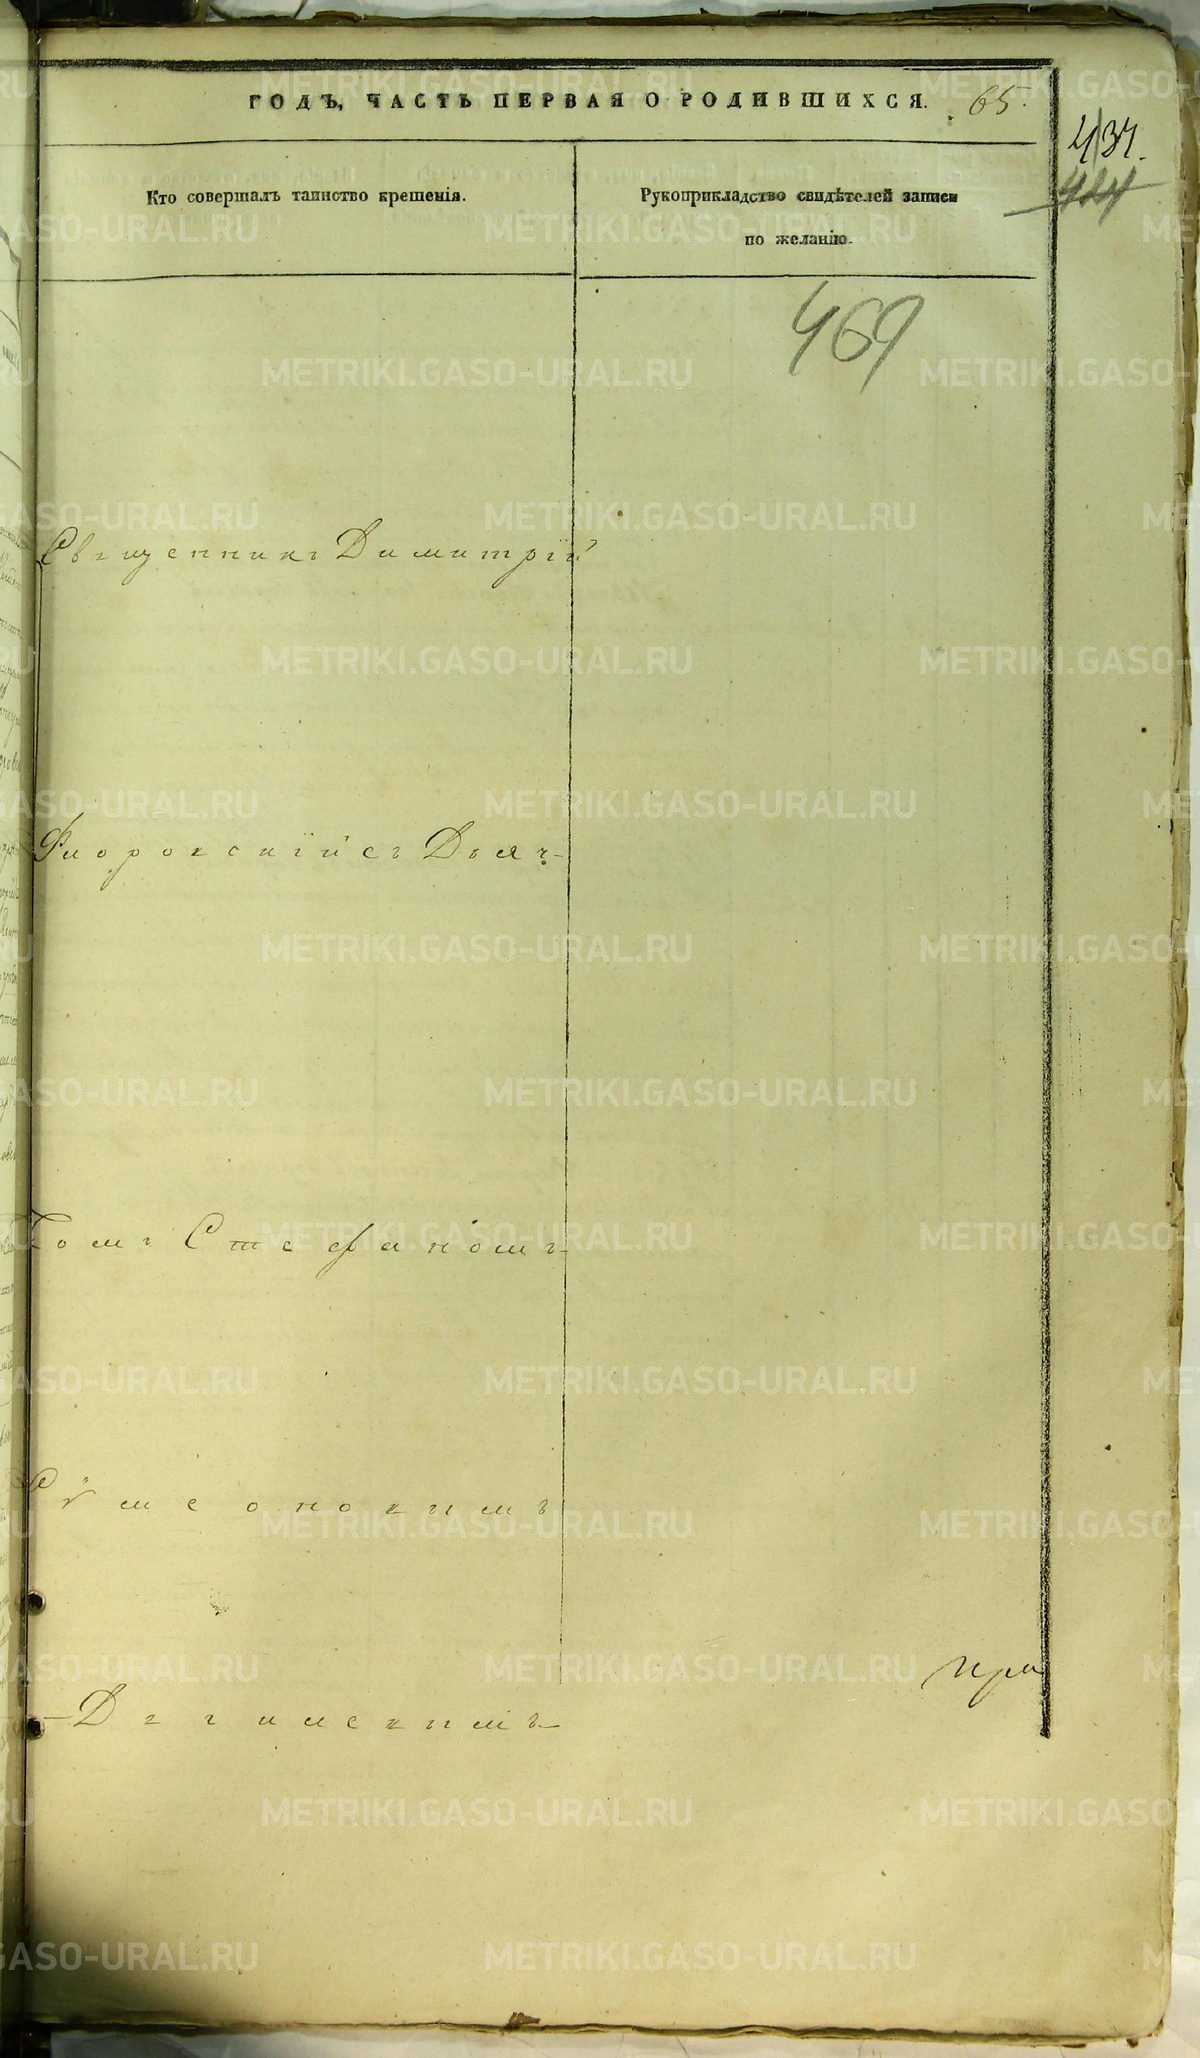 ГОДЪ, ЧАСТЬ ПЕРВАЯ О РОДИВШИХСЯ. 65.
437.
444
Кто совершалъ таинство крещенія.
Рукоприкладство свидѣтелей записи
по желанію.
469
Священникъ Димитрій
Флоровскій съ Дьяч-
комъ Стефаномъ
Сѵмеоновымъ
При
METRIKI.GASO-URAL.RU